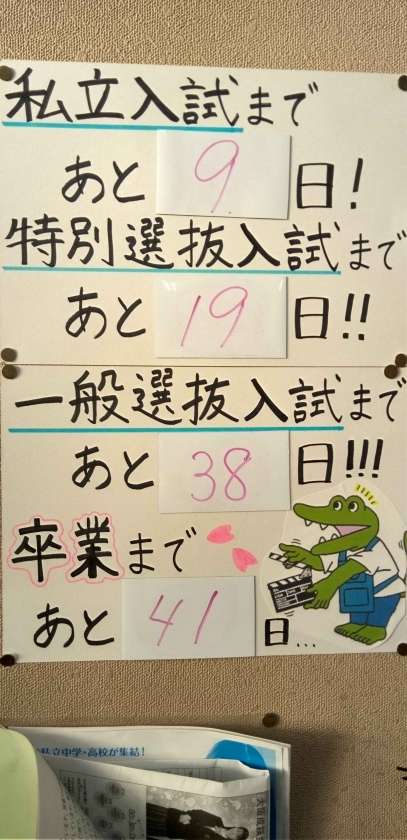 私立入試まで
あと 9 日!
特別選抜入試まで
あと 19 日!!
一般選抜入試まで
あと 38 日!!!
卒業まで
あと 41 日...
私立中学・高校が集結!